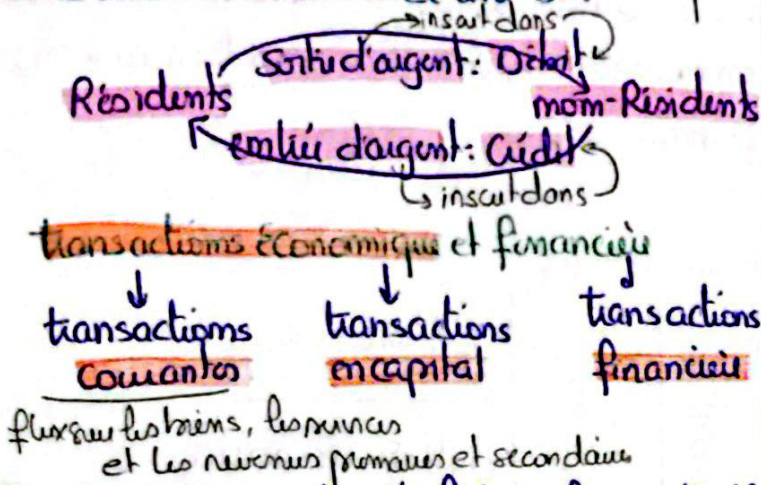 inscrit dans
Sortie d'argent: Débit
Résidents
non-Résidents
entrée d'argent: Crédit
inscrit dans
transactions économique et financière
transactions transactions transactions
courantes en capital financière
flux sur les biens, les services
et les revenus primaires et secondaire